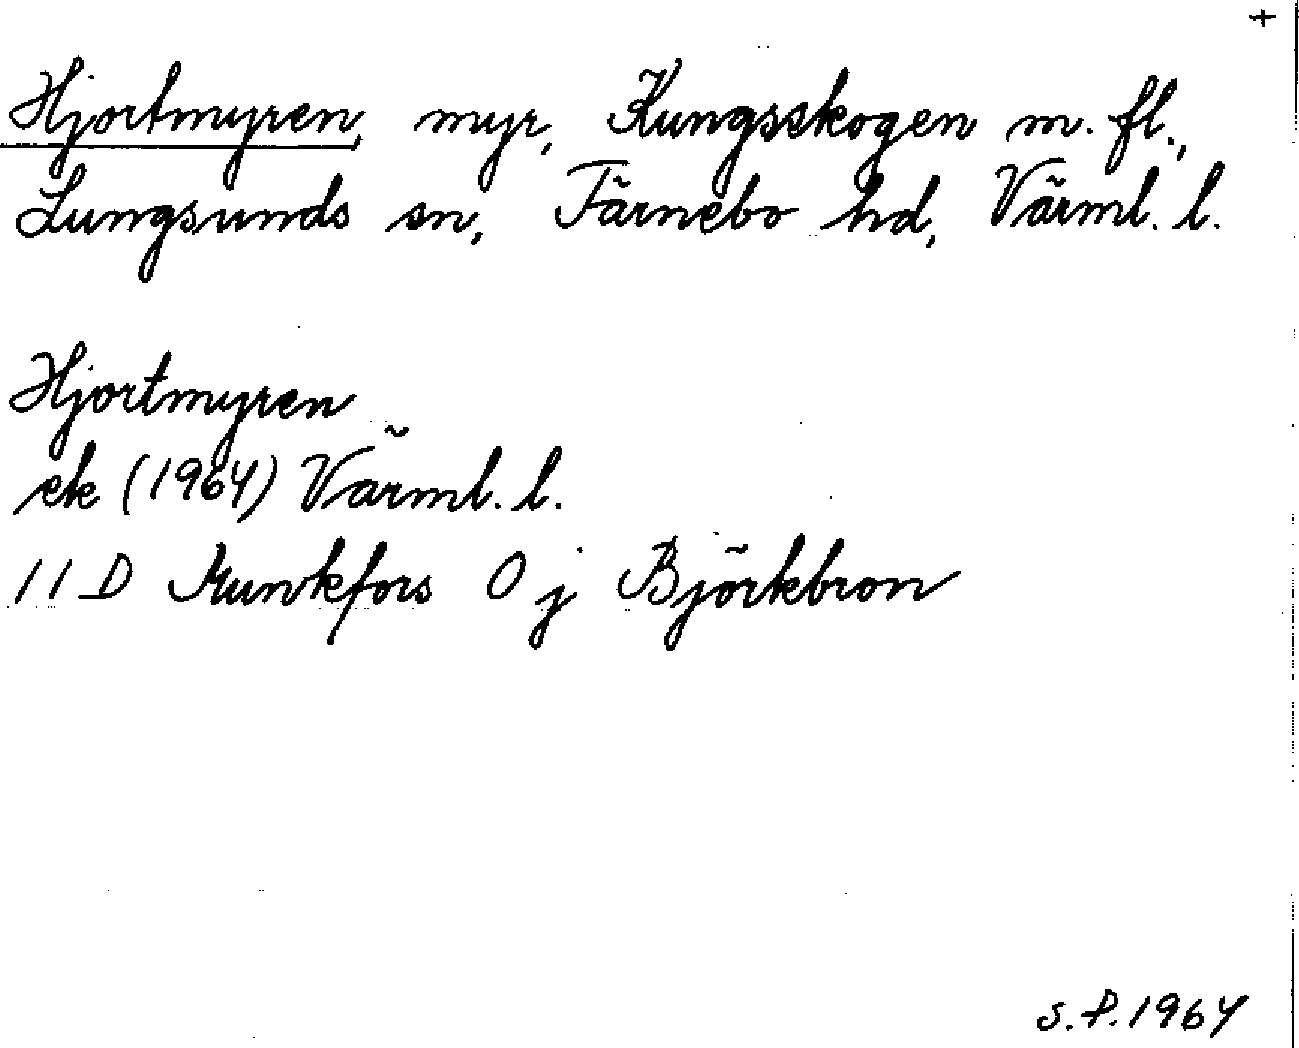 +
Hjortmyren, myr, Kungsskogen m. fl.,
Lungsunds sn, Färnebo hd, Värml. l.
Hjortmyren
ek (1964) Värml. l.
11 D Munkfors 0 j Björkbron
S.P. 1964